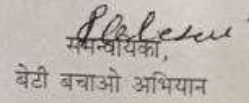 समन्वायिका,
बेटी बचाओ अभियान